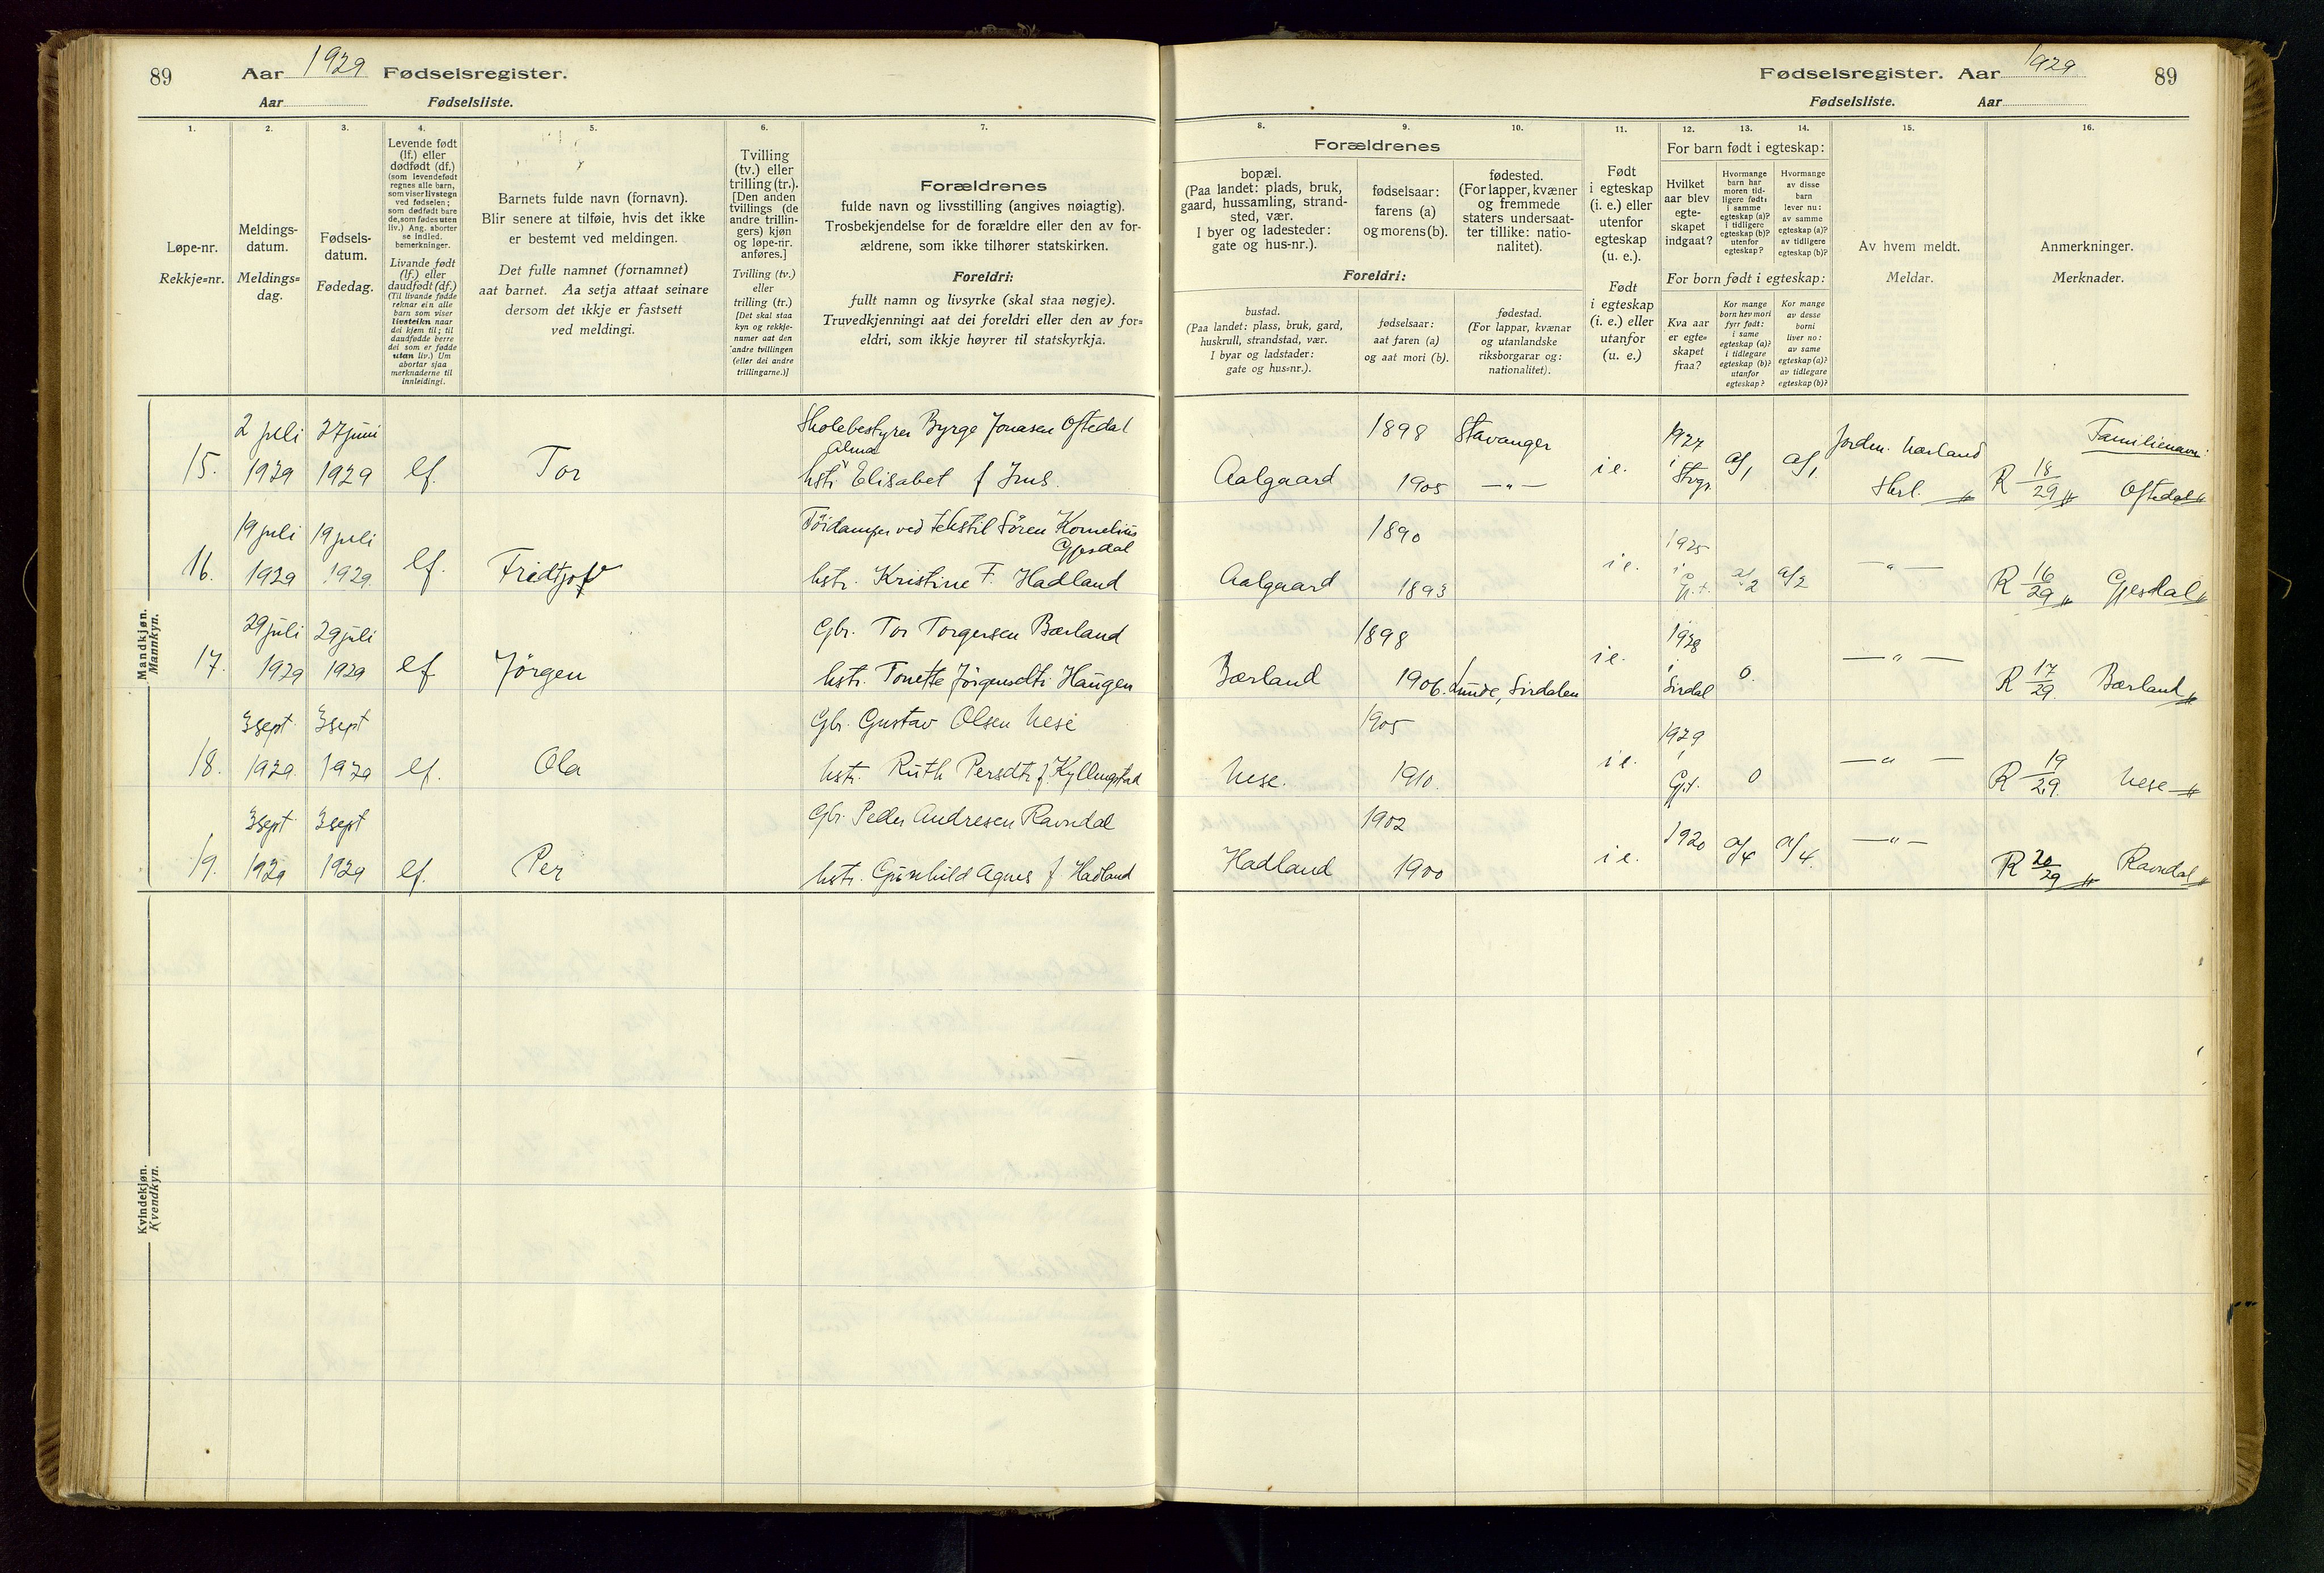 89 Aar 1929 Fødselsregister.
Aar Fødselsliste.
Fødselsregister. Aar 1929 89
Fødselsliste. Aar
1.
Løpe-nr.
Rekkje=nr.
2.
Meldings-
datum.
Meldings=
dag.
3.
Fødsels-
datum.
Fødedag.
4.
Levende født
(lf.) eller
dødfødt (df.)
(som levendefødt
regnes alle barn,
som viser livstegn
ved fødselen;
som dødfødt bare
de, som fødes uten
liv.) Ang. aborter
se indled.
bemerkninger.
Livande født
(lf.) eller
daudfødt (df.)
(Til livande fødde
reknar ein alle
barn som viser
livsteikn naar
dei kjem til; til
daudfødde berre
dei som er fødde
utan liv.) Um
abortar sjaa
merknaderne til
innleidingi.
5.
Barnets fulde navn (fornavn).
Blir senere at tilføie, hvis det ikke
er bestemt ved meldingen.
Det fulle namnet (fornamnet)
aat barnet. Aa setja attaat seinare
dersom det ikkje er fastsett
ved meldingi.
6.
Tvilling
(tv.) eller
trilling (tr.).
[Den anden
tvillings (de
andre trillin-
gers) kjøn
og løpe-nr.
anføres.]
Tvilling (tv.)
eller
trilling (tr.)
[Det skal staa
kyn og rekkje-
numer aat den
andre tvillingen
(eller dei andre
trillingarne.)]
7.
Forældrenes
fulde navn og livsstilling (angives nøiagtig).
Trosbekjendelse for de forældre eller den av for-
ældrene, som ikke tilhører statskirken.
Foreldri:
fullt namn og livsyrke (skal staa nøgje).
Truvedkjenningi aat dei foreldri eller den av for=
eldri, som ikkje høyrer til statskyrkja.
Forældrenes
8.
bopæl.
(Paa landet: plads, bruk,
gaard, hussamling, strand-
sted, vær.
I byer og ladesteder:
gate og hus-nr.).
9.
fødselsaar:
farens (a)
og morens (b).
10.
fødested.
(For lapper, kvæner
og fremmede
staters undersaat-
ter tillike: natio-
nalitet).
Foreldri:
bustad.
(Paa landet: plass, bruk, gard,
huskrull, strandstad, vær.
I byar og ladstader:
gate og hus=nr.).
fødselsaar:
aat faren (a)
og aat mori (b).
fødestad.
(For lappar, kvænar
og utanlandske
riksborgarar og:
nationalitet).
11.
Født
i egteskap
(i. e.) eller
utenfor
egteskap
(u. e.).
Født
i egteskap
(i. e.) eller
utanfor
egteskap
(u. e.)
12. 13. 14.
For barn født i egteskap:
Hvilket
aar blev
egte-
skapet
indgaat?
Hvormange
barn har
moren tid-
ligere født:
i samme
egteskap (a)?
i tidligere
egteskap (b)?
utenfor
egteskap?
Hvormange
av disse
barn
lever nu:
av samme
egteskap (a)?
av tidligere
egteskap (b)?
For born født i egteskap:
Kva aar
er egte=
skapet
fraa?
Kor mange
born hev mori
fyrr født:
i same
egteskap (a)?
i tidlegare
egteskap (b)?
utanfor
egteskap?
Kor mange
av desse
borni
liver no:
av same
egteskap (a)?
av tidlegare
egteskap (b)?
15.
Av hvem meldt.
Meldar.
16.
Anmerkninger.
Merknader.
Mandkjøn.
Mannkyn.
15. 2 juli 1929 27 juni 1929 lf. Tor
Skolebestyrer Byrge Jonasen Oftedal
Alma
hstr Elisabet f
Aalgaard 1898 1905 Stavanger — " —
i e. 1927 i Stvgr. a/1 a/1. Jordm. Harland R 18/29 Familienavn: Oftedal
16. 19 juli 1929 19 juli 1929. lf. Fridtjof
ved tekstil Sören Kornelius
Gjesdal
hstr. Kristine F. Hadland
Aalgaard 1890 1893
i e. 1925 i a/2 a/2 — " — R 16/29 Gjesdal
17. 29 juli 1929 29 juli 1929 lf Jörgen
Gbr. Tor Torgersen Bærland
hstr. Tonette Jörgensdtr Haugen
Bærland 1898 1906. Lunde, Sirdalen
i e. 1928 i Sirdal 0. — " — R 17/29. Bærland
18. 3 sept 1929. 3 sept 1929 lf. Ola
Gbr. Gustav Olsen Nese
hstr. Ruth Persdtr f Kyllingstad
Nese. 1905 1910.
i e. 1929 i Gj.d. 0 — " — R 19/29. Nese
19. 3 sept 1929 3 sept 1929 lf. Per
Gbr. Peder Andresen Ravndal
hstr. Gunhild Agnes f Hadland
Hadland 1902 1900
i e. 1920 a/4 a/4. — " — R 20/29 Ravndal
Kvindekjøn.
Kvendkyn.